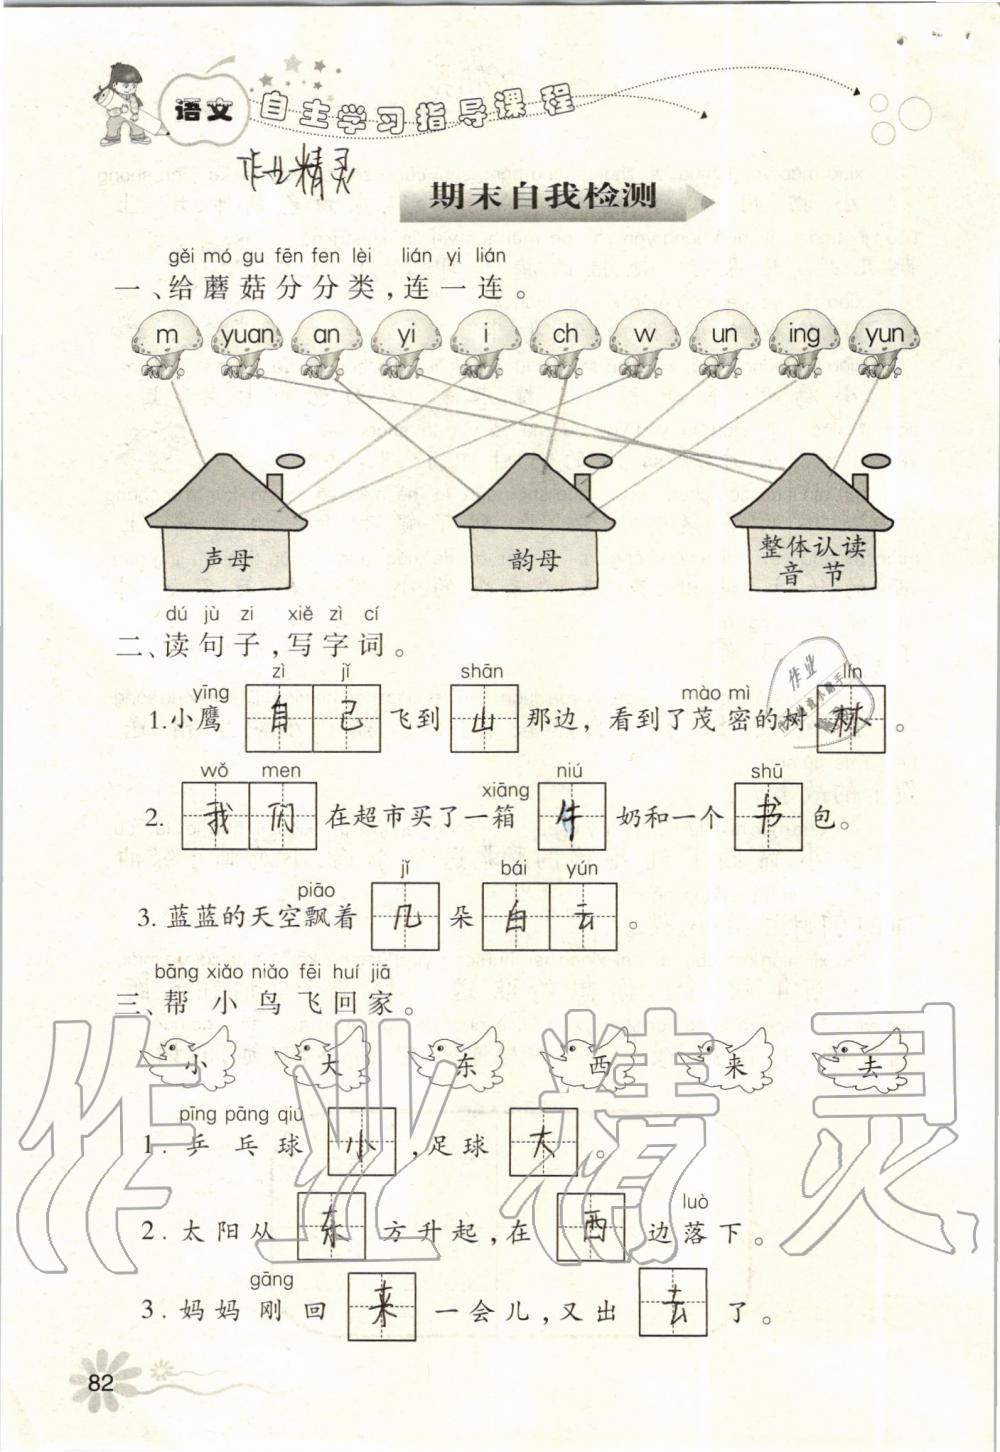 语文 自主学习指导课程
作业精灵
期末自我检测
gěi mó gu fēn fen lèi lián yi lián
一、给蘑菇分分类，连一连。
m yuan an yi i ch w un ing yun
声母 韵母 整体认读音节
dú jù zi xiě zì cí
二、读句子，写字词。
yīng zì jǐ shān mào mì lín
1.小鹰 自己 飞到 山 那边，看到了茂密的树 林 。
wǒ men xiāng niú shū
2. 我们 在超市买了一箱 牛 奶和一个 书 包。
piāo jǐ bái yún
3. 蓝蓝的天空飘着 几 朵 白云 。
bāng xiǎo niǎo fēi huí jiā
三、帮小鸟飞回家。
小 大 东 西 来 去
pīng pāng qiú
1. 乒乓球 小 ，足球 大 。
luò
2. 太阳从 东 方升起，在 西 边落下。
gāng
3. 妈妈刚回 来 一会儿，又出 去 了。
82
作业精灵